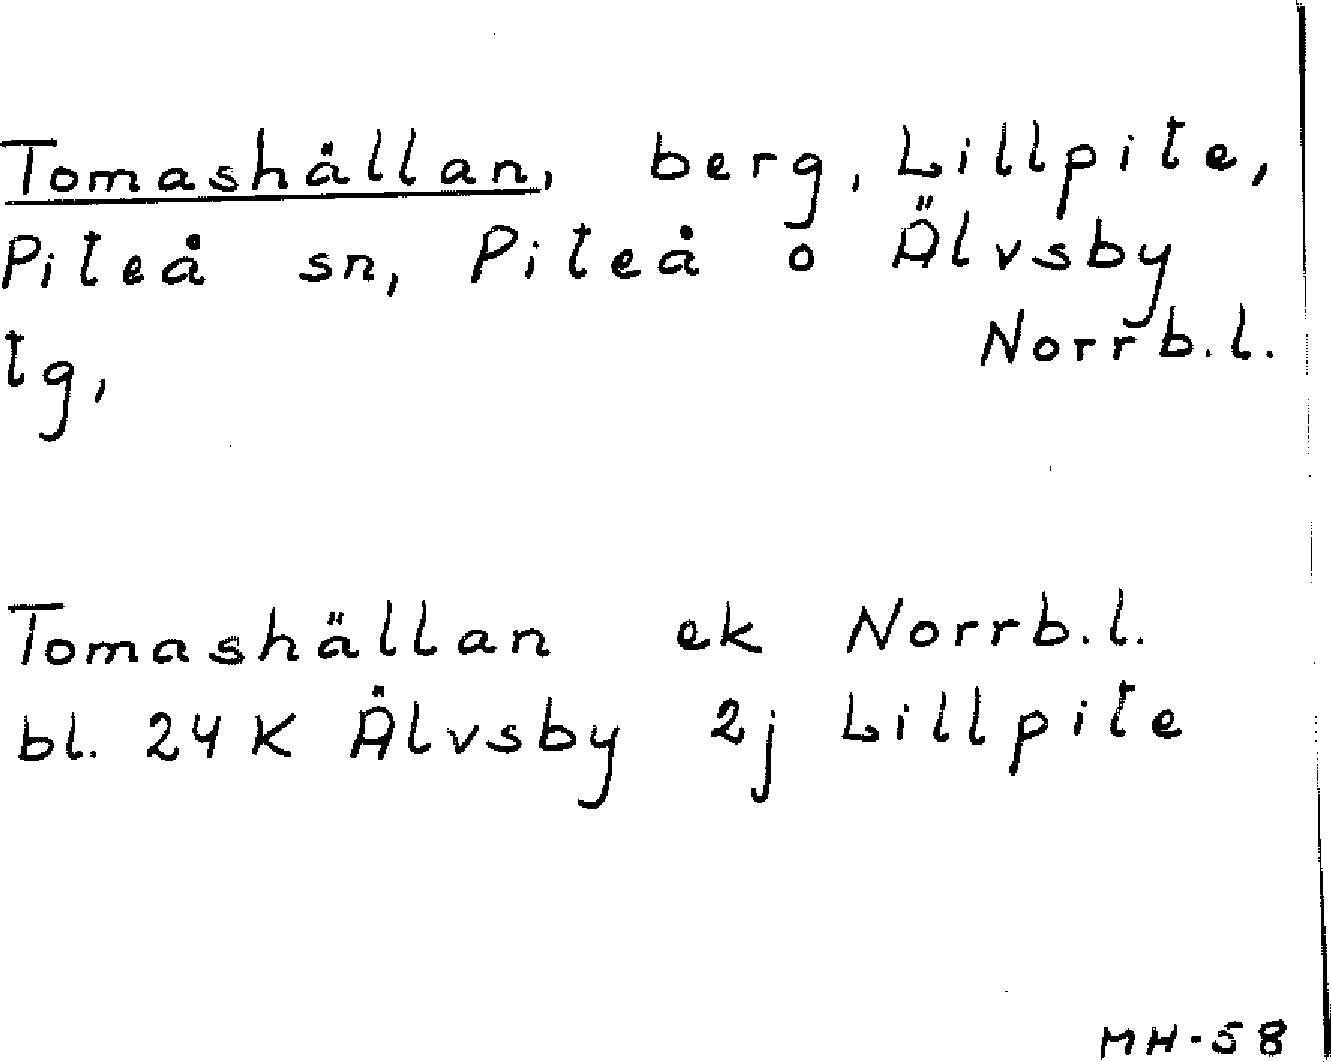 Tomashällan, berg, Lillpite,
Piteå sn, Piteå o Älvsby
tg, Norrb.l.
Tomashällan ek Norrb.l.
bl. 24 K Älvsby 2j Lillpite
MH-58